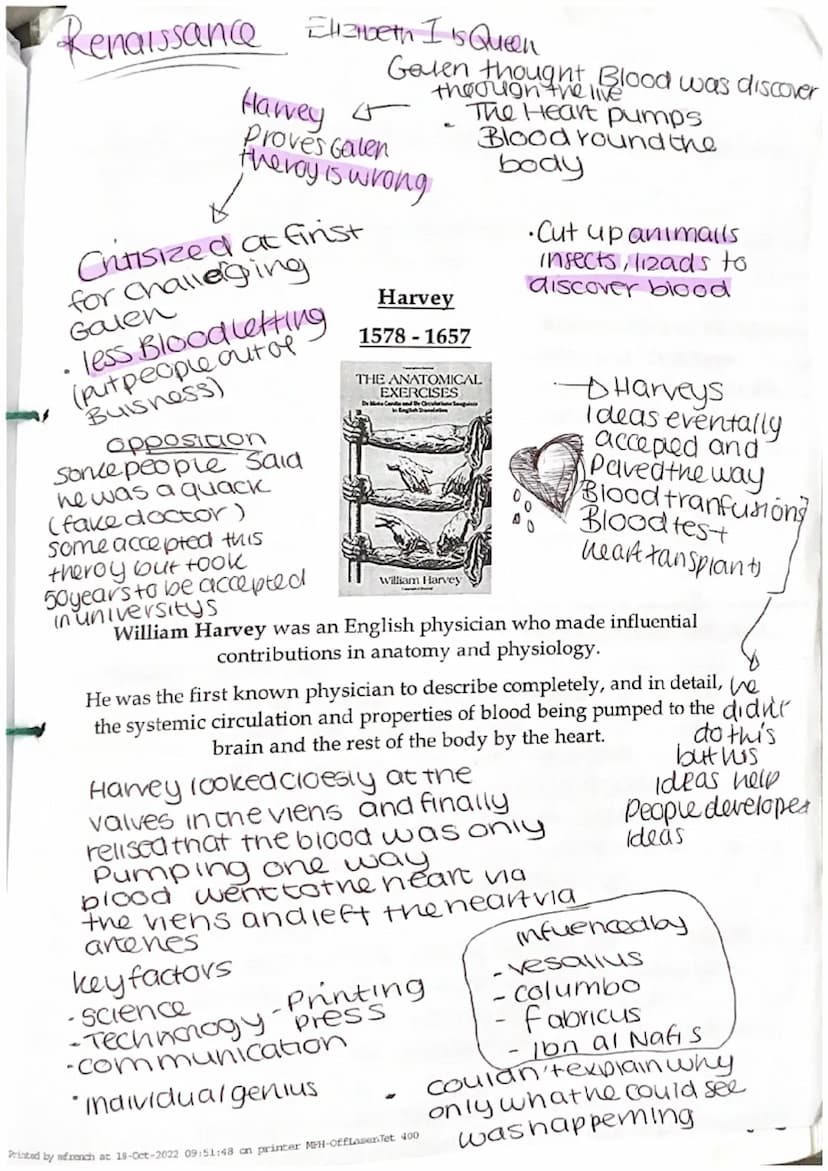 Renaissance
Elizibeth I is Queen
Galen thought Blood was discover
through the live
- The Heart pumps
Blood round the
body
Harvey
Proves Galen
theroy is wrong
Critisized at first
for challeging
Galen
• less Bloodletting
(put people out of
Buisness)
• Cut up animalls
insects, lizads to
discover blood
Harvey
1578 - 1657
THE ANATOMICAL
EXERCISES
De Motu Cordis and De Circulatione Sanguinis
in English Translation
William Harvey
Opposition
some people said
he was a quack
(fake doctor)
some accepted this
theroy but took
50 years to be accepted
in universitys
Harveys
Ideas eventally
acceped and
Paved the way
Blood tranfusions
Blood test
heart tansplants
William Harvey was an English physician who made influential
contributions in anatomy and physiology.
He was the first known physician to describe completely, and in detail,
the systemic circulation and properties of blood being pumped to the
brain and the rest of the body by the heart.
he
didn't
do this
but his
Ideas help
People developed
Ideas
Harvey looked cloesly at the
valves in the viens and finally
relised that the blood was only
Pumping one way
blood went to the heart via
the viens and left the heart via
arteries
key factors
- science
- Technology - Printing
press
- communication
• individual genius
infuenced by
- vesalius
- columbo
- Fabricus
- Ibn al Nafis
- couldn't explain why
only what he could see
was happening
Printed by mfrench at 18-Oct-2022 09:51:48 on printer MPH-OffLaserJet 400